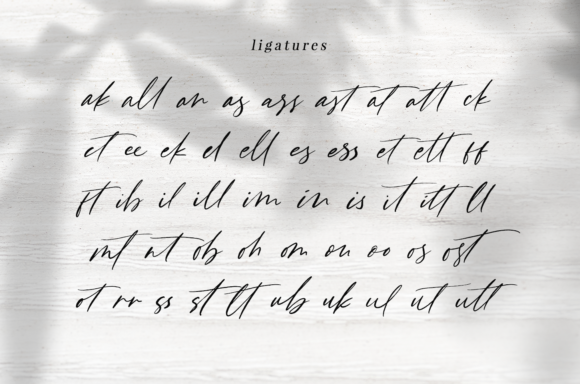 ligatures
ak all an as ass ast at att ck
ct ee ek el ell es ess et ett ff
ft ib il ill im in is it itt ll
mt nt ob oh om on oo os ost
ot rr ss st tt ub uk ul ut utt